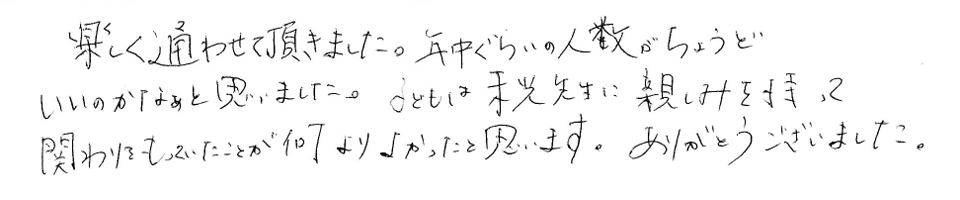 楽しく通わせて頂きました。年中ぐらいの人数がちょうど
いいのかなぁと思いました。子どもは未光先生に親しみを持って
関わりをもっていたことが何よりよかったと思います。ありがとうございました。